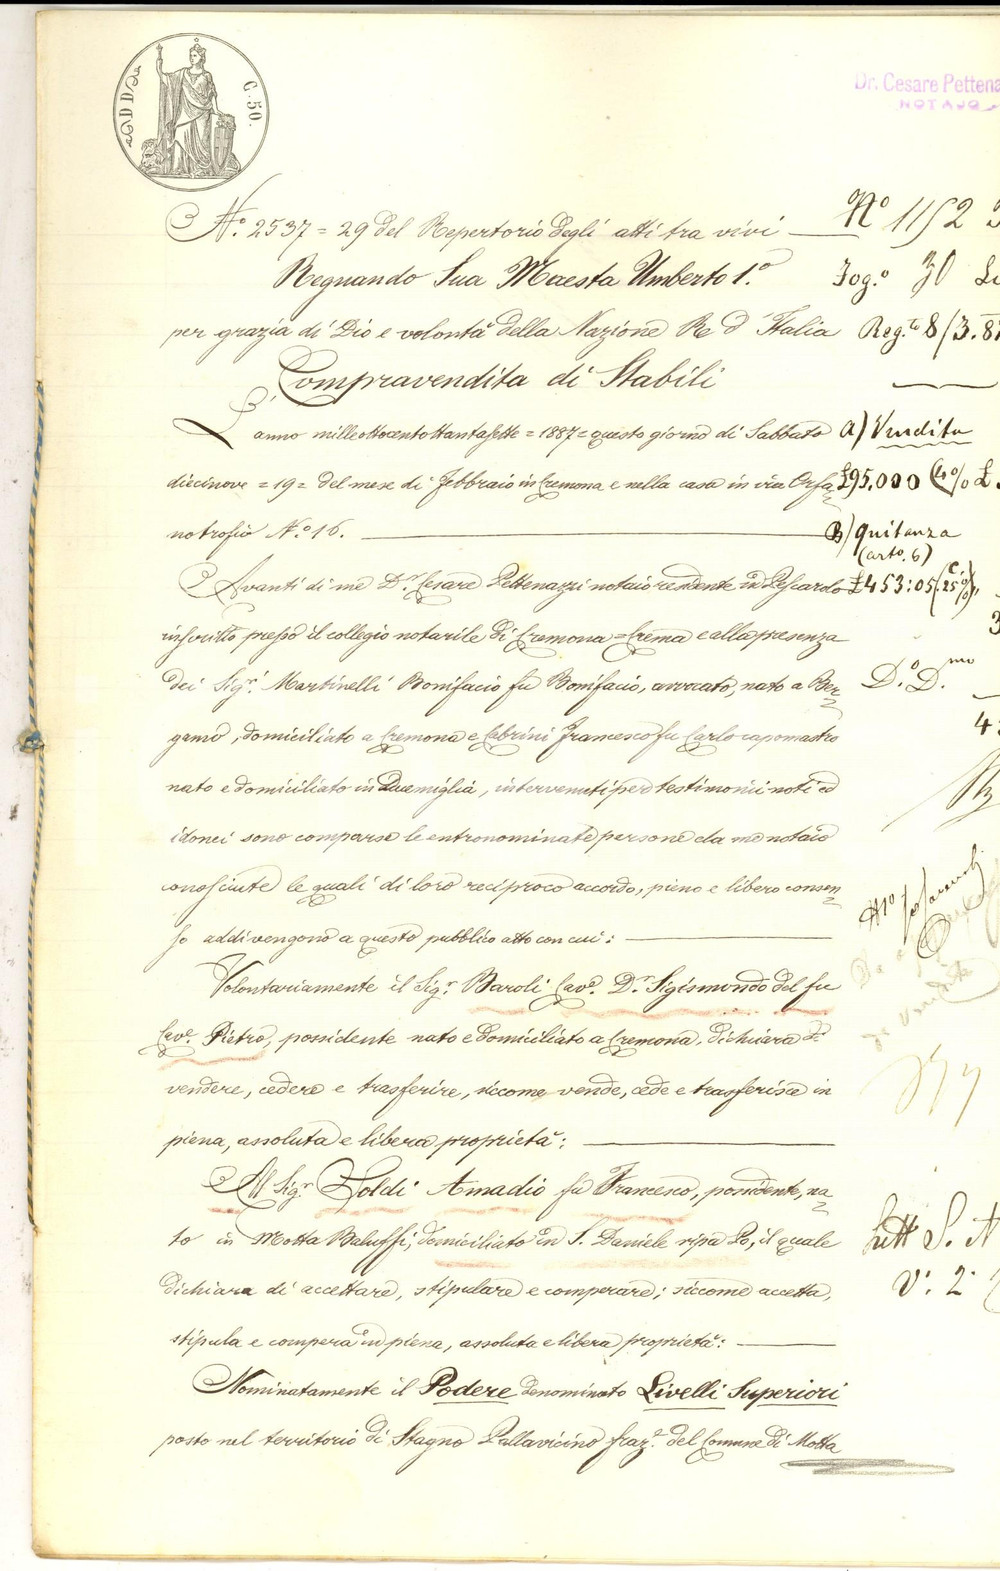 C. 50.
Dr. Cesare Pettena
NOTAJO
N.º 2537 = 29 del Repertorio degli atti tra vivi
Regnando Sua Maesta Umberto 1.º
per grazia di Dio e volontà della Nazione Re d'Italia
Compravendita di Stabili
L'anno milleottocentottantasette = 1887 = questo giorno di Sabbato
diecinove = 19 = del mese di Febbraio in Cremona e nella casa in via Orfa
notrofio N.º 16.
Avanti di me D.r Cesare Pettenazzi notaio residente in Pescarolo
inscritto presso il collegio notarile di Cremona = Crema e alla presenza
dei Sig.ri Martinelli Bonifacio fu Bonifacio, avvocato, nato a Ber
gamo, domiciliato a Cremona e Cabrini Francesco fu Carlo capomastro
nato e domiciliato in Duemiglia, intervenuti per testimonii noti ed
idonei sono comparse le entronominate persone da me notaio
conosciute le quali di loro reciproco accordo, pieno e libero consen
so addivengono a questo pubblico atto con cui:
Volontariamente il Sig.r Baroli Cav.e D.r Sigismondo del fu
Cav.e Pietro, possidente nato e domiciliato a Cremona, dichiara di
vendere, cedere e trasferire, siccome vende, cede e trasferisce in
piena, assoluta e libera proprietà:
Al Sig.r Soldi Amadio fu Francesco, possidente, na
to in Motta Baluffi, domiciliato in S. Daniele ripa Po, il quale
dichiara di accettare, stipulare e comperare; siccome accetta,
stipula e compera in piena, assoluta e libera proprietà:
Nominatamente il Podere denominato Livelli Superiori
posto nel territorio di Stagno Pallavicino fraz.e del Comune di Motta
Nº 1152
Fog.º 30
Reg.to 8/3.87
a) Vendita
£95.000 (4%) £
B) quitanza
(arto. 6)
£453:05 (C. 25%)
D.º D.mo
V. 2